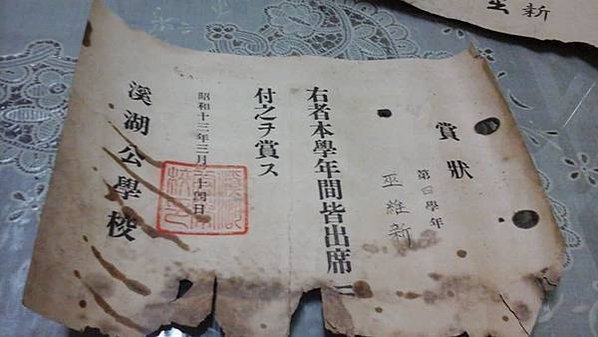 新
賞狀
第四學年
巫維新
右者本學年間皆出席ニ
付之ヲ賞ス
昭和十三年三月二十四日
溪湖公學校